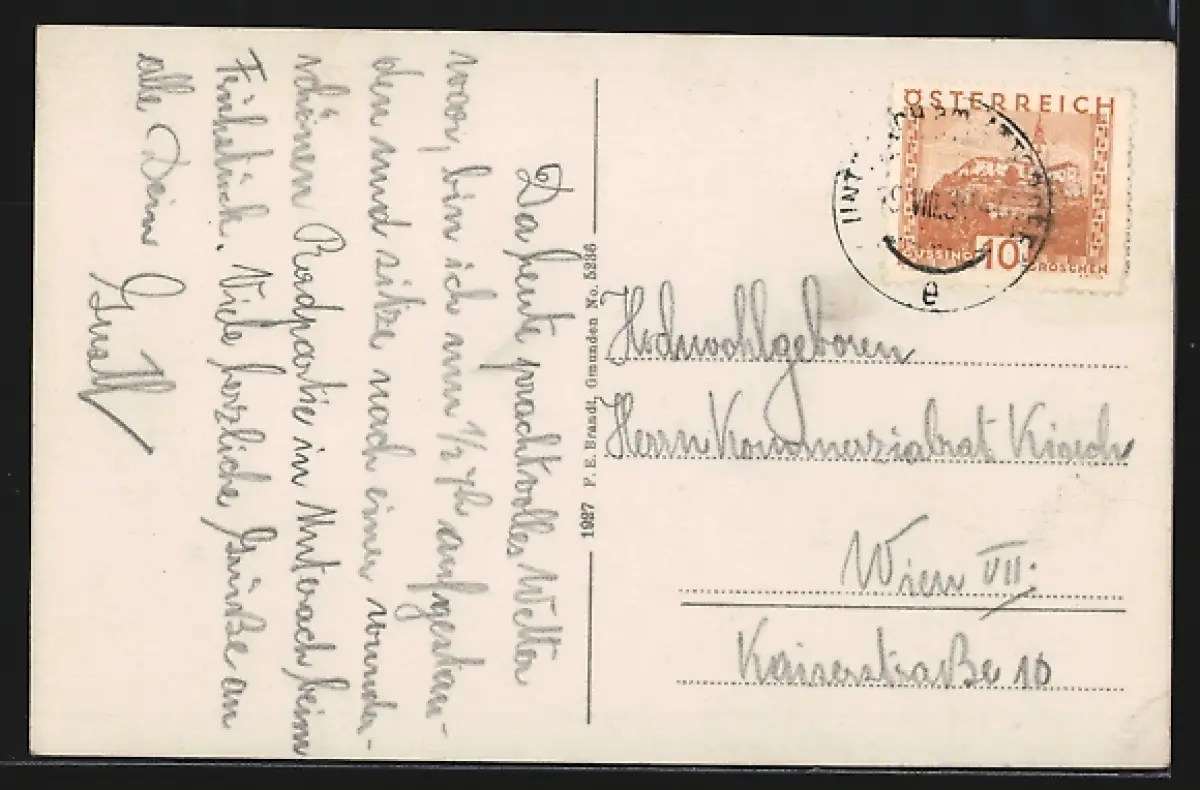 Da heute prachtvolles Wetter
war, bin ich um 1/2 7h aufgestan-
den und sitze nach einer wunder-
schönen Radpartie in Unterach beim
Frühstück. Viele herzliche Grüße an
alle Dein
1927 F. E. Brandt, Gmunden No. 5236
ÖSTERREICH
GÜSSING 10 GROSCHEN
e
Hochwohlgeboren
Herrn Kommerzialrat
Wien VII.
Kaiserstraße 10